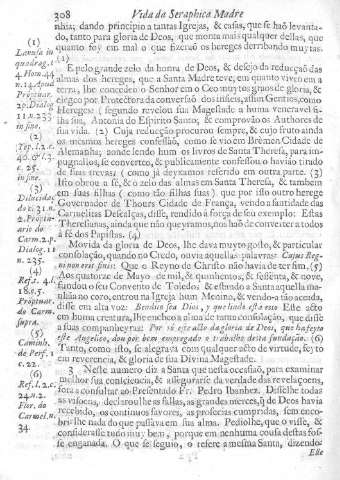 308 Vida da Seraphica Madre
nhia; dando principio a tantas Igrejas, & casas, que se haõ levanta-
do, tanto para gloria de Deos, que monta mais qualquer dellas, que
quanto foy em mal o que fizeraõ os hereges derribando muytas.
(1)
E pelo grande zelo da honra de Deos, & desejo da reducçaõ das
almas dos hereges, que a Santa Madre teve, em quanto viveo em a
terra, lhe concedeo o Senhor em o Ceo muytos graos de gloria, &
elegeo por Protectora da conversaõ dos infieis, assim Gentios, como
Hereges: segundo revelou sua Magestade a huma veneravel fi-
lha sua, Antonia do Espirito Santo, & comprovaõ os Authores de
sua vida. (2) Cuja reducçaõ procurou sempre, & cujo fruto ainda
os mesmos hereges confessaõ, como se vio em Bremen Cidade de
Alemanha; aonde lendo hum os livros de Santa Theresa, para im-
pugnallos, se converteo, & publicamente confessou o haviaõ tirado
de suas trevas: (como já deyxamos referido em outra parte. (3)
Isto obrou a fé, & o zelo das almas em Santa Theresa, & tambem
em suas filhas (como taõ filhas suas) que por isso outro herege
Governador de Thours Cidade de França, vendo a santidade das
Carmelitas Descalças, disse, rendido à força de seu exemplo: Estas
Theresianas, ainda que não queyramos, nos haõ de converter a todos
à fé dos Papistas. (4)
Movida da gloria de Deos, lhe dava muyto gosto, & particular
consolação, quando no Credo, ouvia aquellas palavras: Cujus Reg-
ni non erit finis: Que o Reyno de Christo não havia de ter fim. (5)
Aos quatorze de Mayo de mil, & quinhentos, & sessenta, & nove,
fundou o seu Convento de Toledo; & estando a Santa aquella ma-
nhãa no coro, entrou na Igreja hum Menino, & vendo-a taõ aceada,
disse em alta voz: Bendito seja Deos, que lindo està isto. Este acto
em huma creatura, lhe encheo a alma de tanta consolação, que disse
a suas companheyras: Por só este acto da gloria de Deos, que ha feyto
este Angelico, dou por bem empregado o trabalho desta fundação. (6)
Tanto, como isto, se alegrava com qualquer acto de virtude, feyto
em reverencia, & gloria de sua Divina Magestade.
3 Neste numero diz a Santa que nesta occasiaõ, para examinar
melhor sua consciencia, & assegurarse da verdade das revelaçoens,
fora consultar ao Presentado Fr. Pedro Ibanhez. Disselhe todas
as visoens, declaroulhe as faltas, as grandes merces, q̃ de Deos havia
recebido, os continuos favores, as profecias cumpridas, sem enco-
brirlhe nada do que passava em sua alma. Pediolhe, que o visse, &
considerasse tudo muy bem, porque em nenhuma cousa destas fos-
se enganada. O que se seguio, o refere a mesma Santa, dizendo:
Elle
(1)
Lanuza in
quadrag. t
4. Hom. 44
n. 14. Apud
Propinar.
2 p. Dialog
11 n. 233
in fine.
(2)
Top. l. 2. c.
40. & l. 3.
c. 25.
in fine.
(3)
(4)
Ref. t. 4. l.
18. c. 5.
Propinar.
do Carm.
supra.
(5)
Caminh.
de Perf.
c. 22.
(6)
Ref. l. 2. c.
24. n. 2.
Flor. do
Carmel. n.
34.